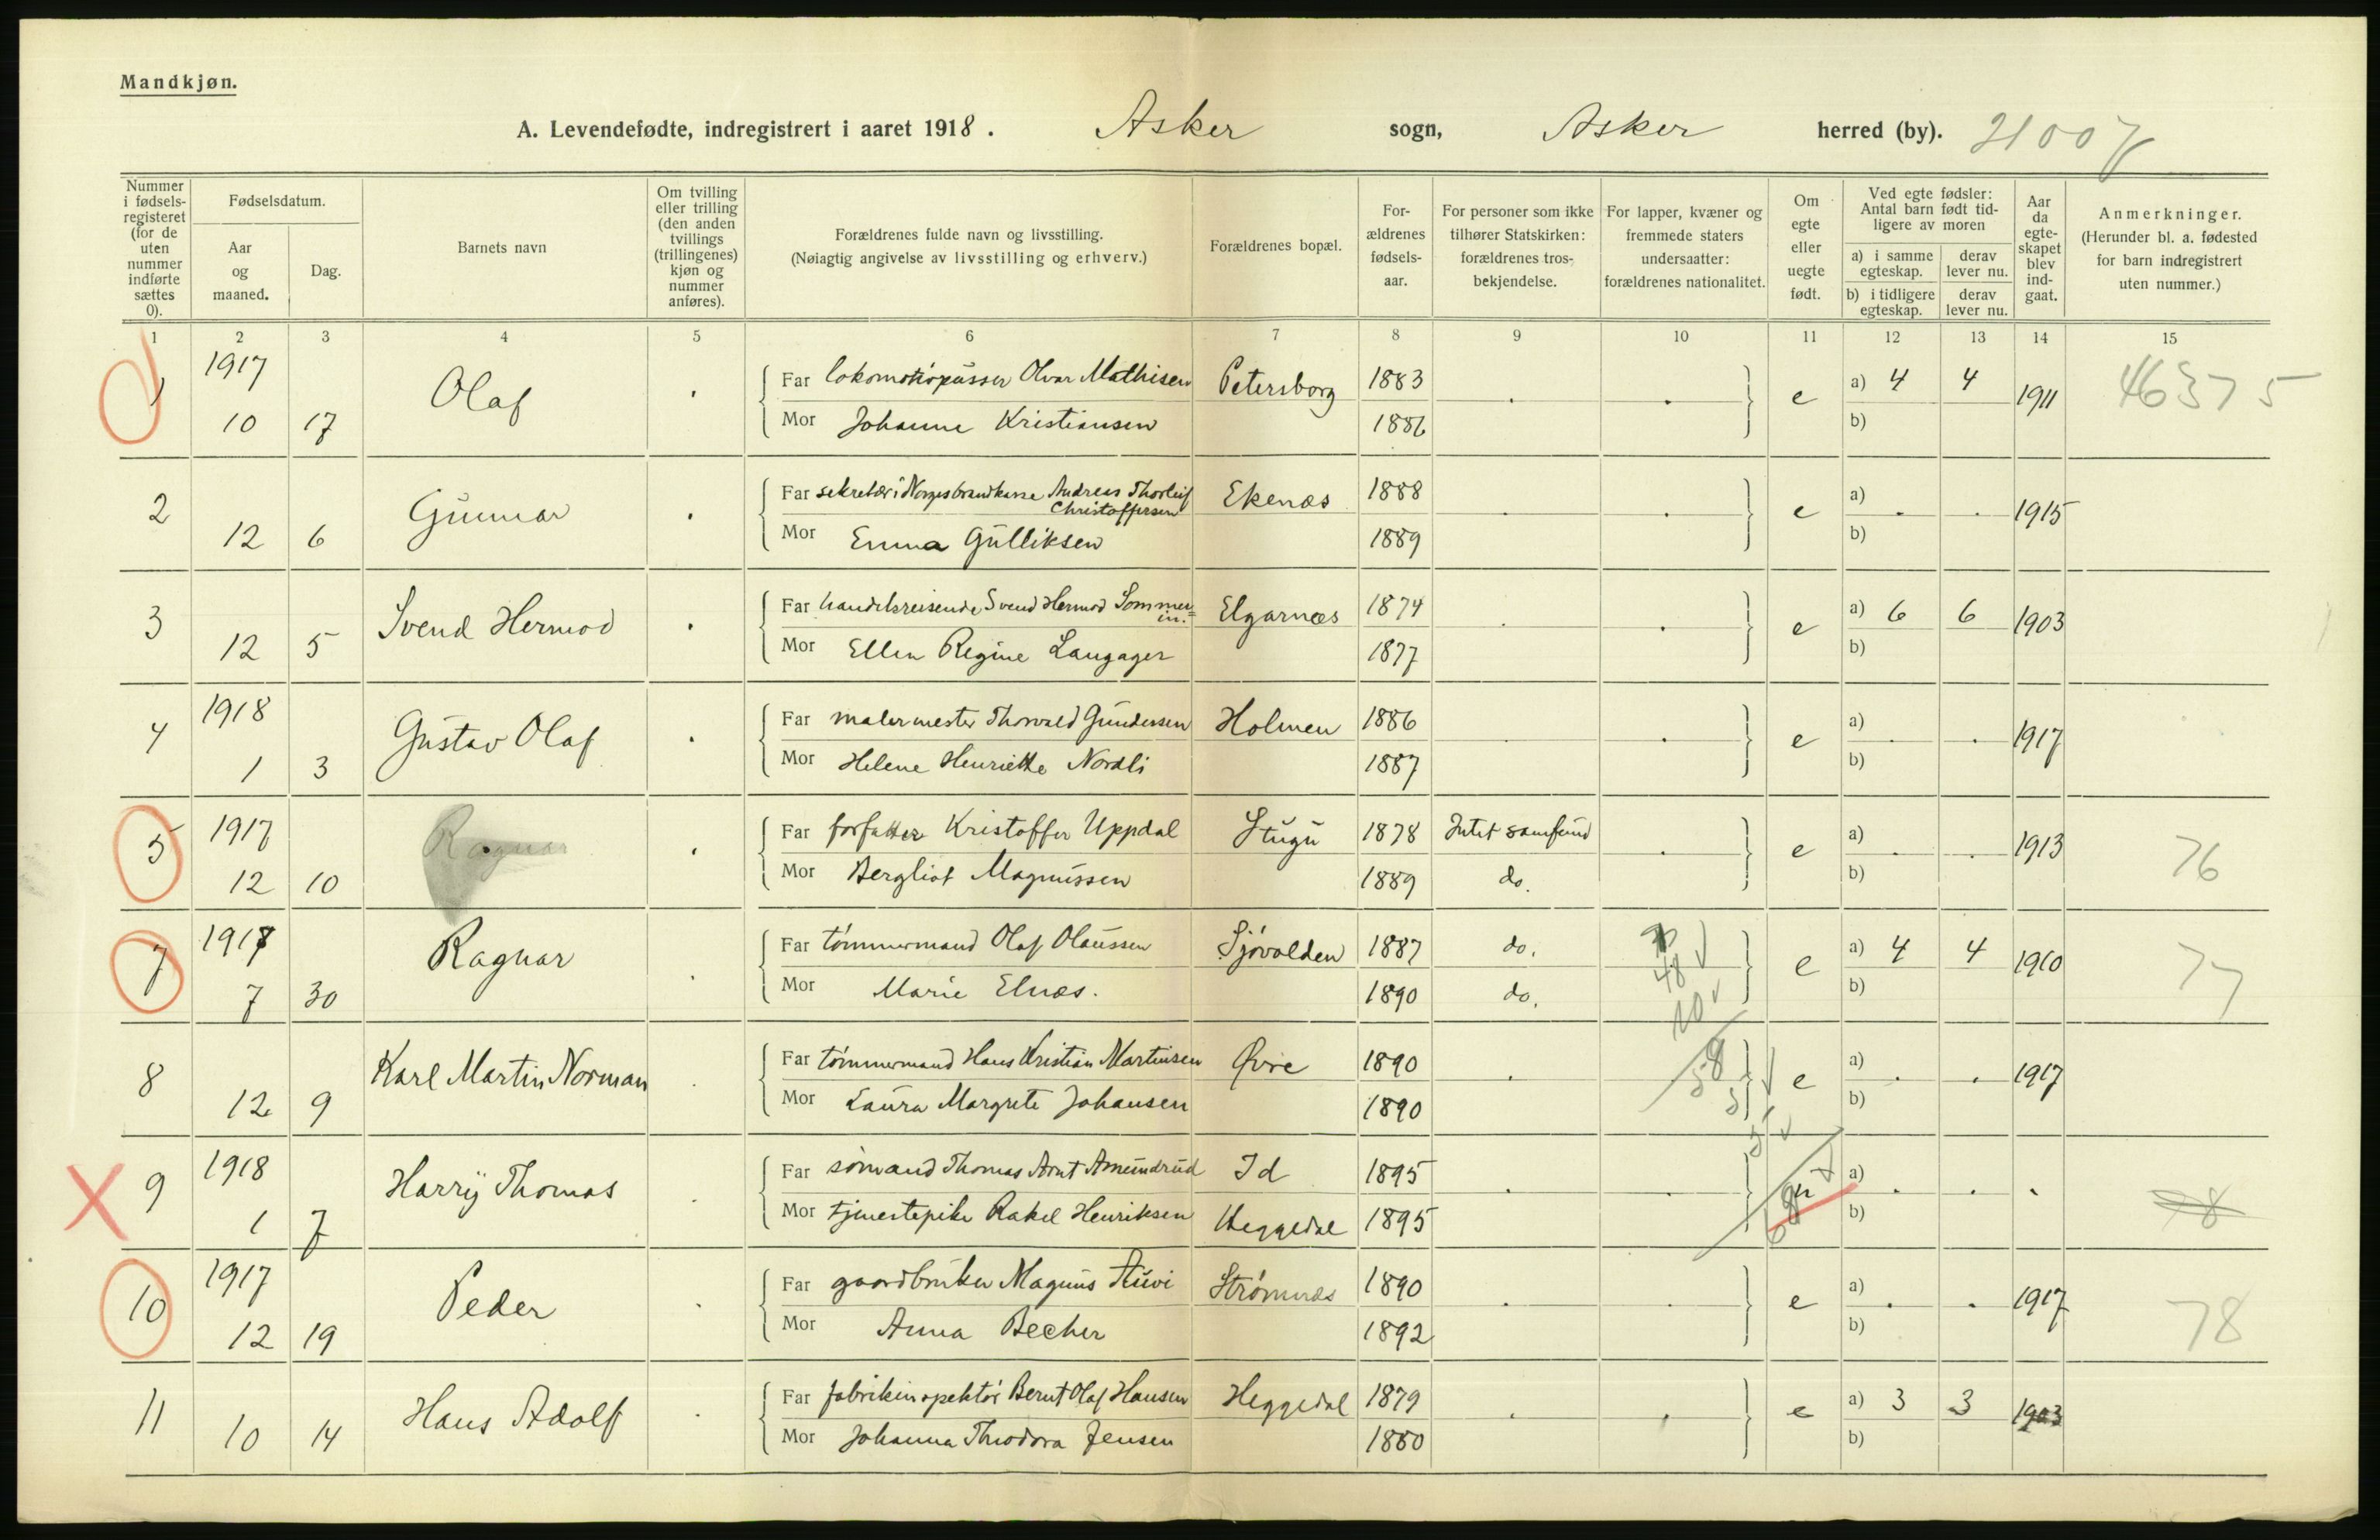 Mandkjøn.
A. Levendefødte, indregistrert i aaret 1918. Asker sogn, Asker herred (by). 21007
Nummer i fødsels-registeret (for de uten nummer indførte sættes 0).
Fødselsdatum.
Aar og maaned.
Dag.
Barnets navn
Om tvilling eller trilling (den anden tvillings (trillingenes) kjøn og nummer anføres).
Forældrenes fulde navn og livsstilling.
(Nøiagtig angivelse av livsstilling og erhverv.)
Forældrenes bopæl.
For-ældrenes fødsels-aar.
For personer som ikke tilhører Statskirken: forældrenes tros-bekjendelse.
For lapper, kvæner og fremmede staters undersaatter: forældrenes nationalitet.
Om egte eller uegte født.
Ved egte fødsler: Antal barn født tid-ligere av moren
a) i samme egteskap. derav lever nu.
b) i tidligere egteskap. derav lever nu.
Aar da egte-skapet blev ind-gaat.
Anmerkninger.
(Herunder bl. a. fødested for barn indregistrert uten nummer.)
1 2 3 4 5 6 7 8 9 10 11 12 13 14 15
1 1917 10 17 Olaf . Far lokomotivpusser Olvar Mathisen Petersborg 1883 . . e a) 4 4 1911 46375
Mor Johanne Kristiansen 1886 b)
2 12 6 Gunnar . Far sekretær i Norges brandkasse Andreas Thorleif Christoffersen Ekenæs 1888 . . e a) . . 1915
Mor Emma Gulliksen 1889 b)
3 12 5 Svend Hermod . Far handelsreisende Svend Hermod Sommer= Elgarnæs 1874 . . e a) 6 6 1903
Mor Ellen Regine Langager 1877 b)
4 1918 1 3 Gustav Olaf . Far malermester Thorvald Gundersen Holmen 1886 . . e a) . . 1917
Mor Helene Henriette Nordli 1887 b)
5 1917 12 10 Ragnar . Far forfatter Kristoffer Uppdal Stugu 1878 Intet samfund . e a) . . 1913 76
Mor Bergliot Magnussen 1889 do. b)
7 1917 7 30 Ragnar . Far tømmermand Olaf Olaussen Sjøvolden 1887 do. 48 e a) 4 4 1910 77
Mor Marie Elnæs. 1890 do. 10 b)
8 12 9 Karl Martin Norman . Far tømmermand Hans Kristian Martinsen Øvre 1890 . 58 e a) . . 1917
Mor Laura Margrete Johansen 1890 b)
9 1918 1 7 Harry Thomas . Far sømand Thomas Arnt Amundrud Id 1895 . . u a) . . . 78
Mor tjenestepike Rakel Henriksen Heggedal 1895 b)
10 1917 12 19 Peder . Far gaardbruker Magnus Stuvi Strømnæs 1890 . . e a) . . 1917 78
Mor Anna Becher 1892 b)
11 10 14 Hans Adolf . Far fabrikinspektør Bernt Olaf Hansen Heggedal 1879 . . e a) 3 3 1903
Mor Johanna Theodora Jensen 1880 b)